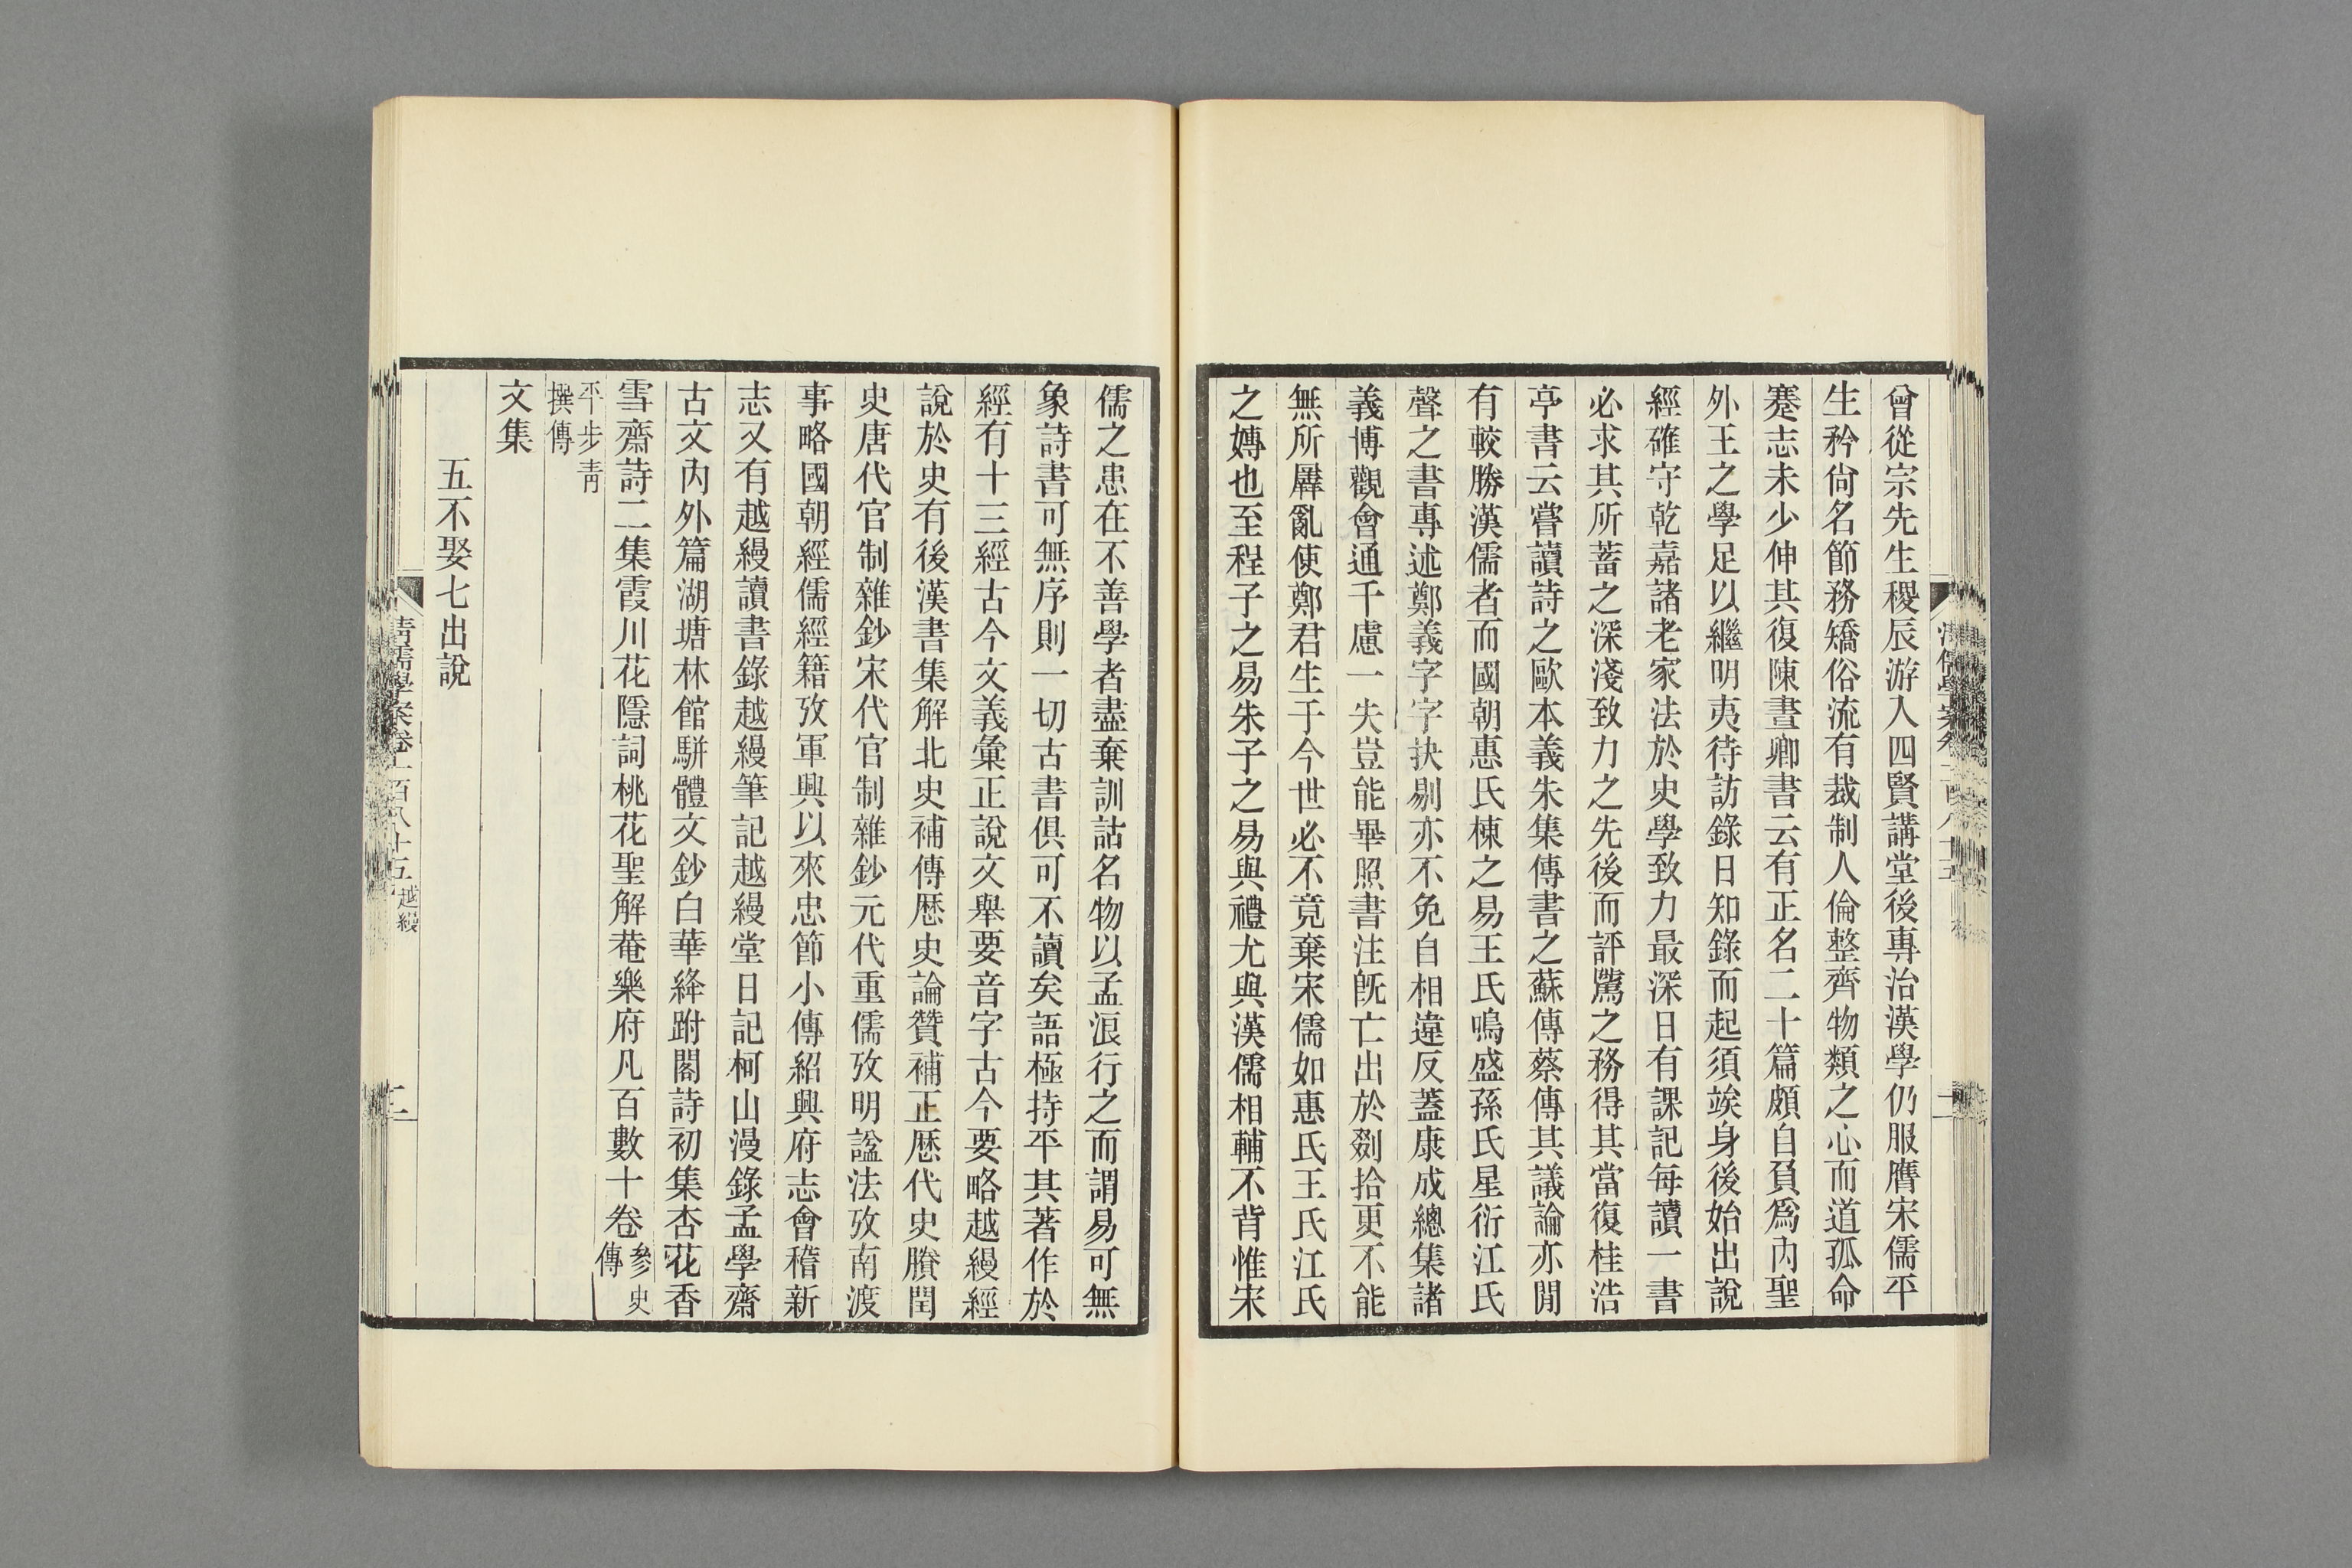 曾從宗先生稷辰游入四賢講堂後專治漢學仍服膺宋儒平
生矜尙名節務矯俗流有裁制人倫整齊物類之心而道孤命
蹇志未少伸其復陳晝卿書云有正名二十篇頗自負爲內聖
外王之學足以繼明夷待訪錄日知錄而起須竢身後始出說
經確守乾嘉諸老家法於史學致力最深日有課記每讀一書
必求其所蓄之深淺致力之先後而評騭之務得其當復桂浩
亭書云嘗讀詩之歐本義朱集傳書之蘇傳蔡傳其議論亦閒
有較勝漢儒者而國朝惠氏棟之易王氏鳴盛孫氏星衍江氏
聲之書專述鄭義字字抉剔亦不免自相違反蓋康成總集諸
義博觀會通千慮一失豈能畢照書注旣亡出於劉拾更不能
無所羼亂使鄭君生于今世必不竟棄宋儒如惠氏王氏江氏
之嫥也至程子之易朱子之易與禮尤與漢儒相輔不背惟宋
儒之患在不善學者盡棄訓詁名物以孟浪行之而謂易可無
象詩書可無序則一切古書俱可不讀矣語極持平其著作於
經有十三經古今文義彙正說文舉要音字古今要略越縵經
說於史有後漢書集解北史補傳歷史論贊補正歷代史賸閏
史唐代官制雜鈔宋代官制雜鈔元代重儒攷明諡法攷南渡
事略國朝經儒經籍攷軍興以來忠節小傳紹興府志會稽新
志又有越縵讀書錄越縵筆記越縵堂日記柯山漫錄孟學齋
古文內外篇湖塘林館駢體文鈔白華絳跗閣詩初集杏花香
雪齋詩二集霞川花隱詞桃花聖解菴樂府凡百數十卷參史傳
平步靑撰傳
文集
五不娶七出說
清儒學案卷一百八十五 越縵 二